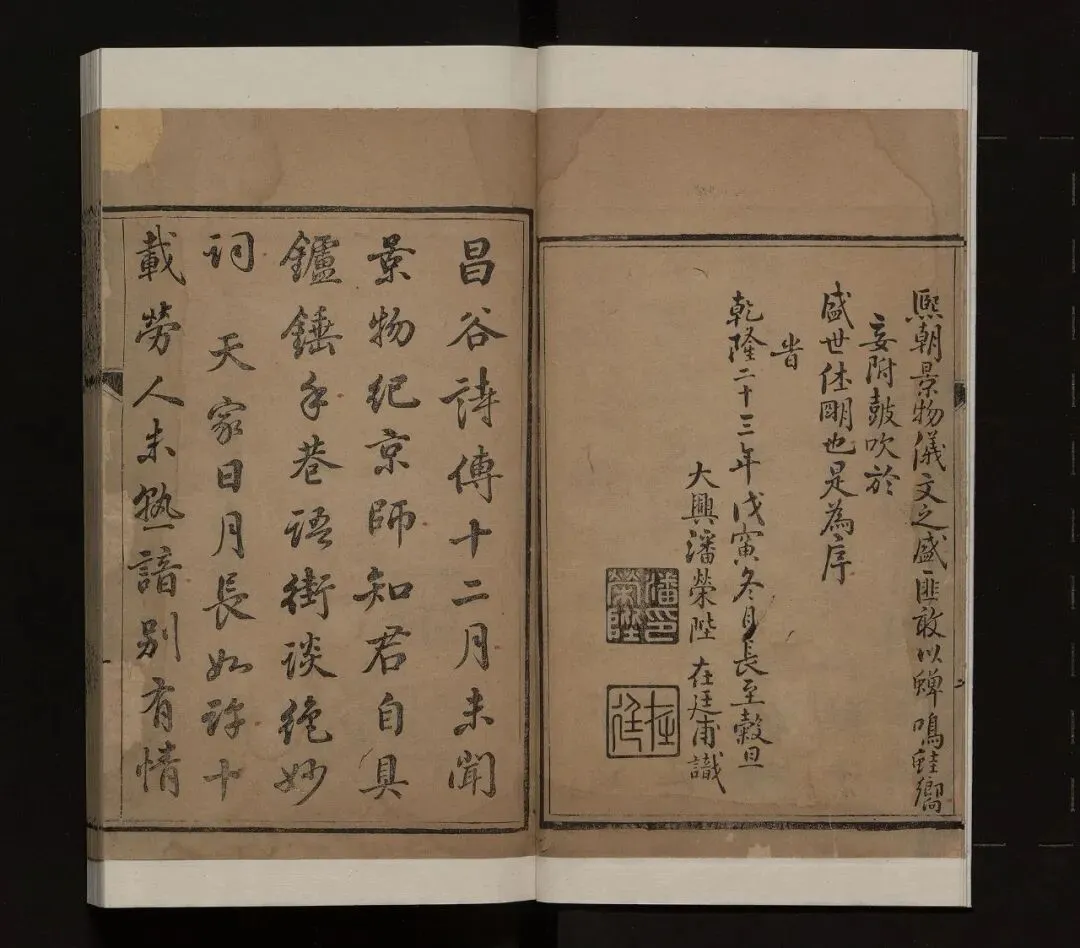 熈朝景物儀文之盛匪敢以蟬鳴鼃響
妄附鼓吹於
盛世休明也是為序
旹
乾隆二十三年戊寅冬月長至穀旦
大興潘榮陛 在廷甫識
潘印榮陛
在廷
昌谷詩傳十二月未聞
景物紀京師知君自具
鑪錘手巷語街談絶妙
詞 天家日月長如許十
載勞人未熟諳別有情